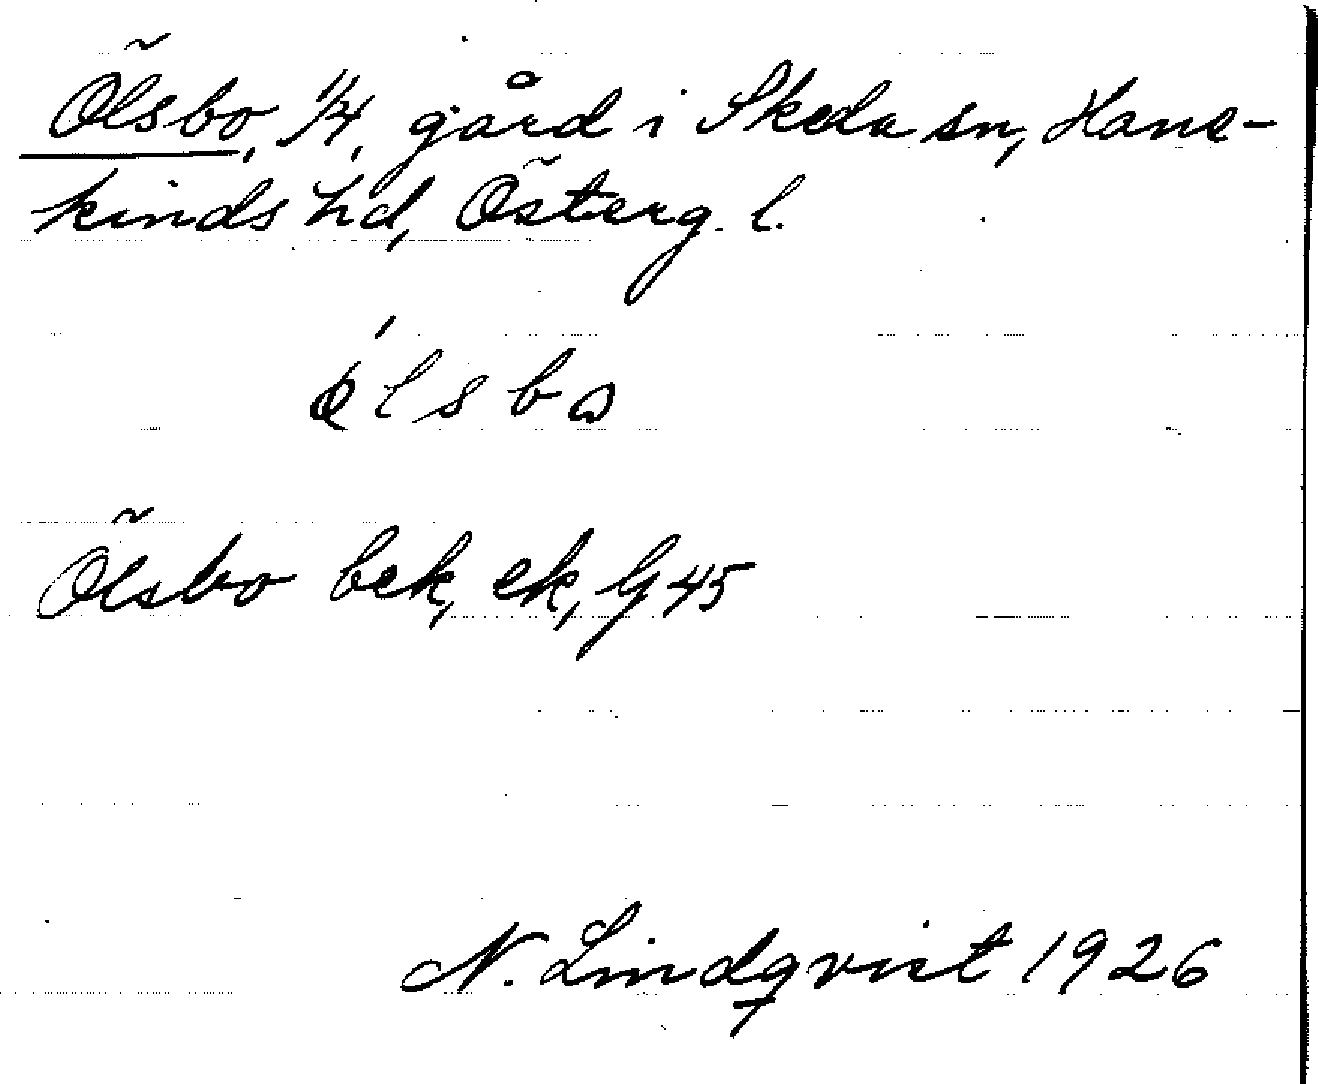 Ölsbo, 1/4, gård i Skeda sn, Hane-
kinds hd, Österg. l.
Ölsbo bek, ek, G 45
N. Lindqvist 1926